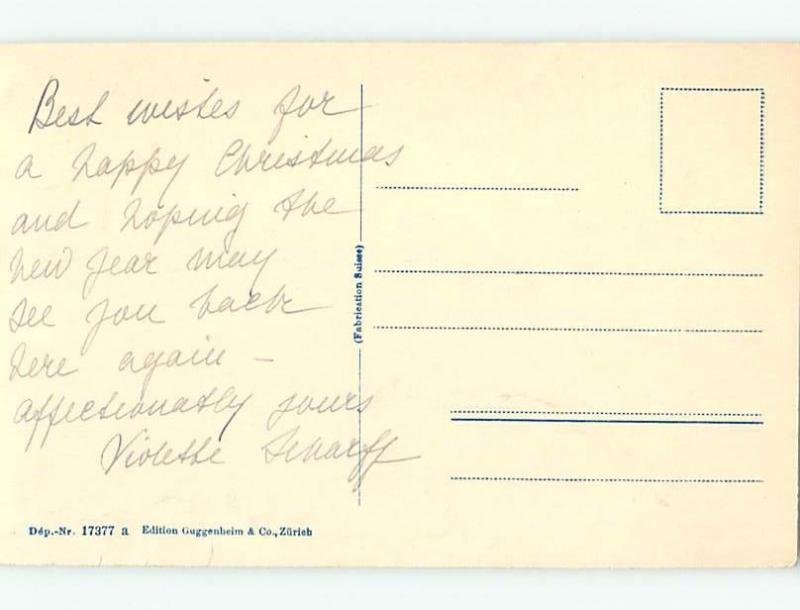 Best wishes for
a happy Christmas
and hoping the
new year may
see you back
here again –
affectionately yours
Violette Scharff
(Fabrication Suisse)
Dép.-Nr. 17377 a Edition Guggenheim & Co., Zürich